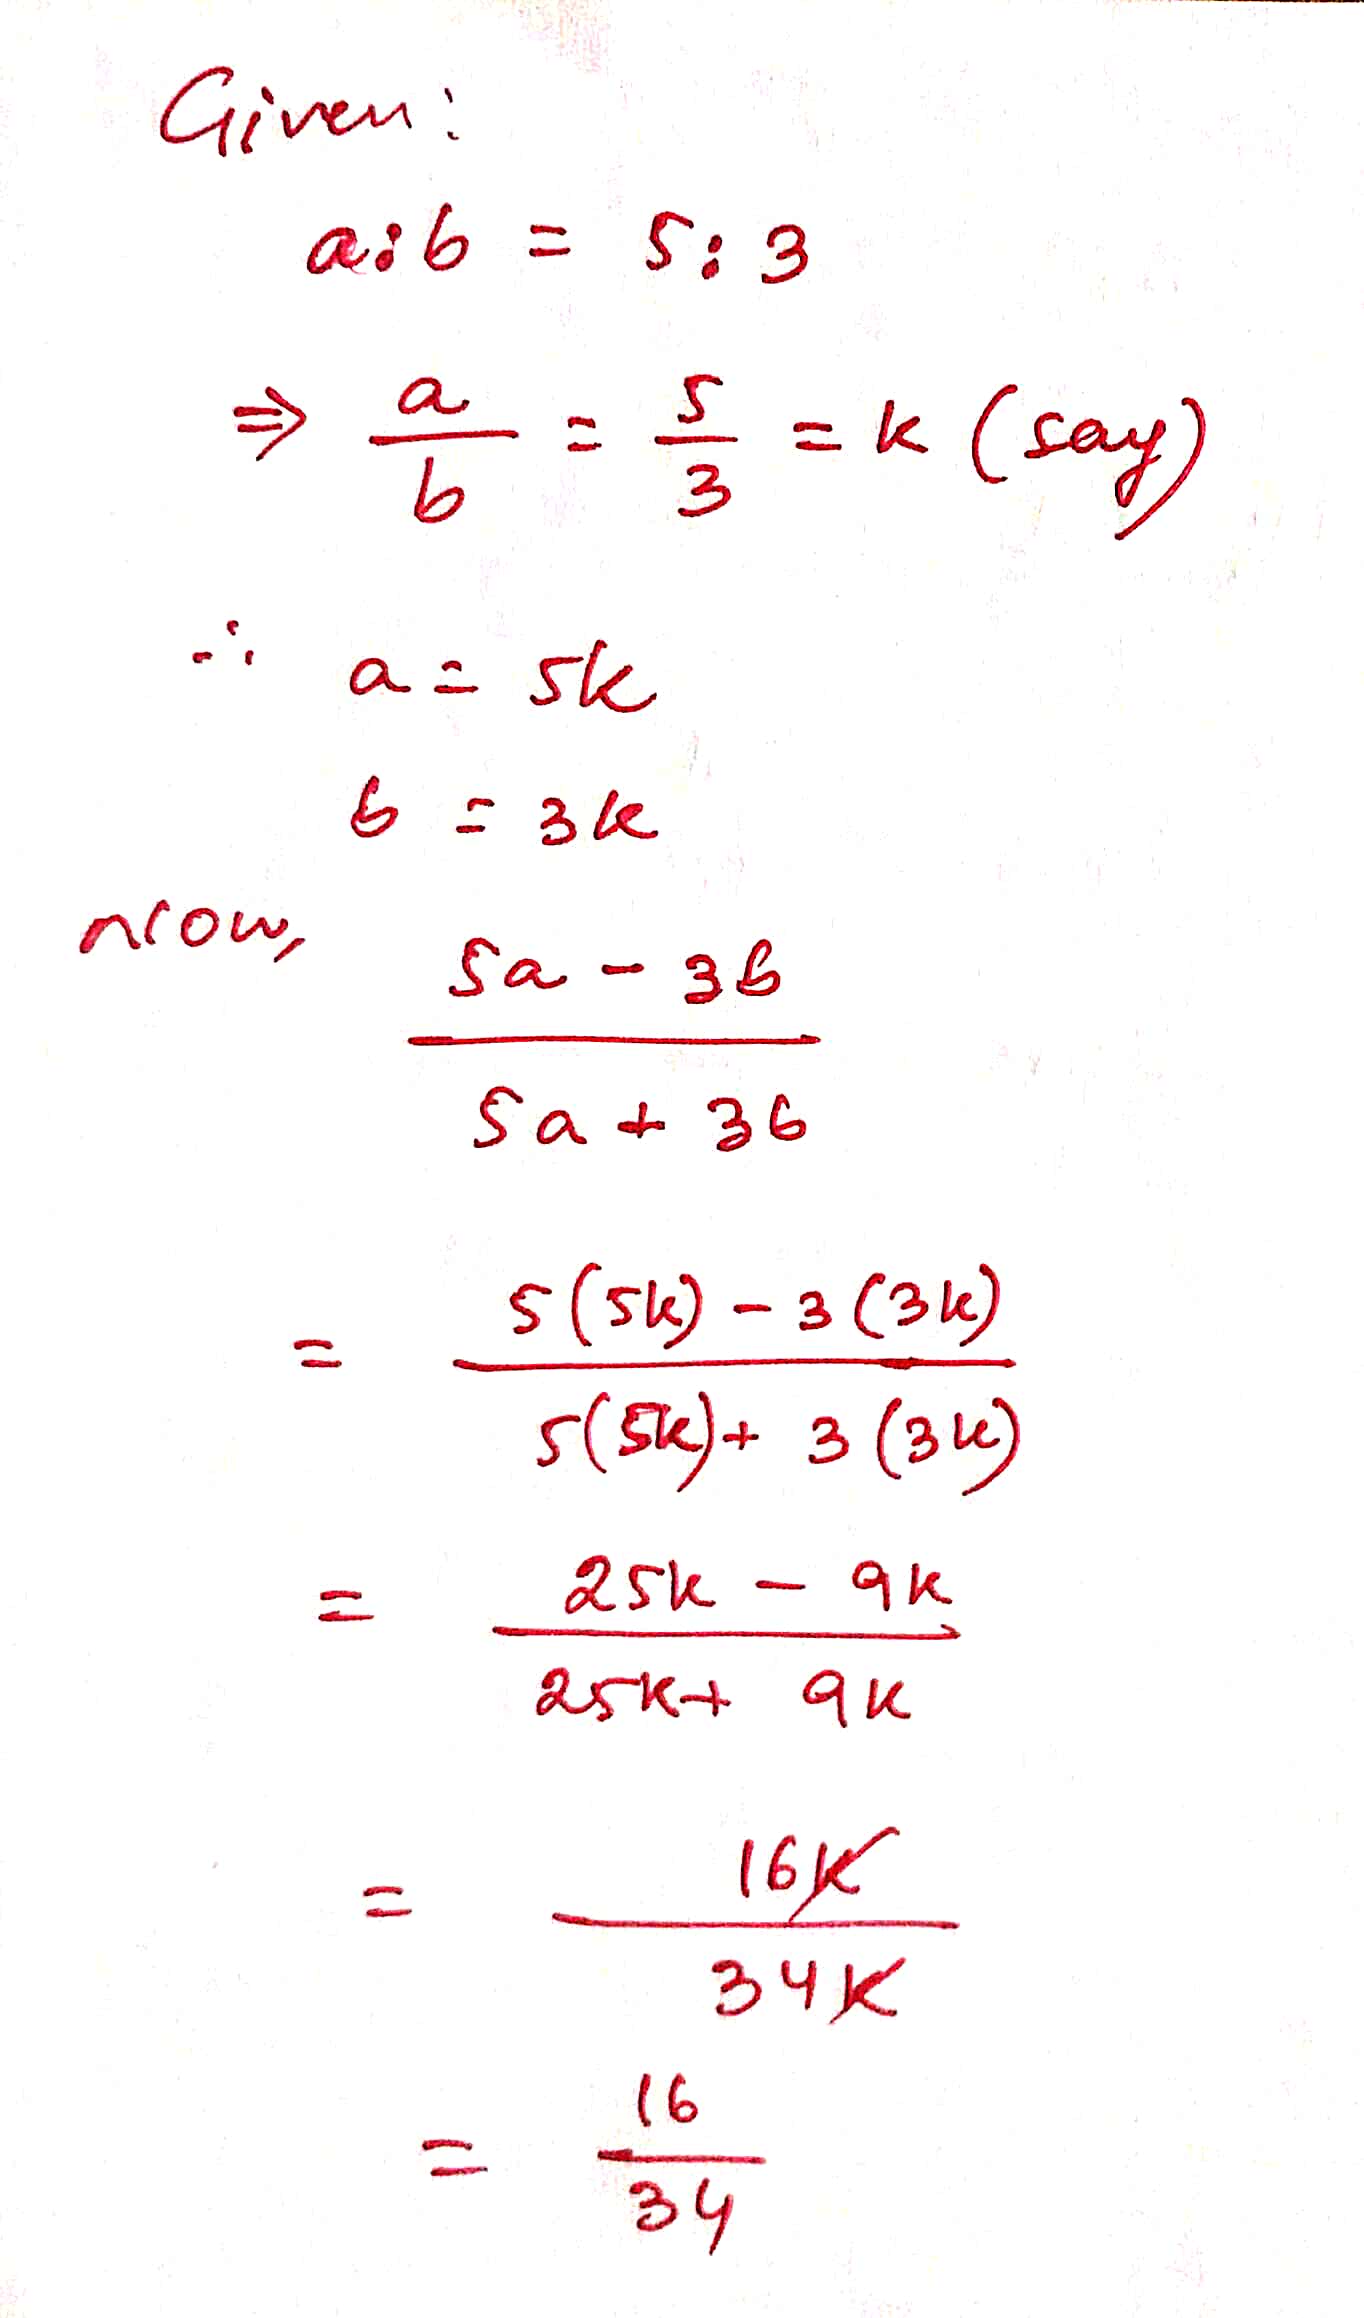 Given:
a:b = 5:3
⇒ a/b = 5/3 = k (say)
∴ a = 5k
b = 3k
now,
5a - 3b
5a + 3b
= 5(5k) - 3(3k)
5(5k) + 3(3k)
= 25k - 9k
25k + 9k
= 16k
34k
= 16
34